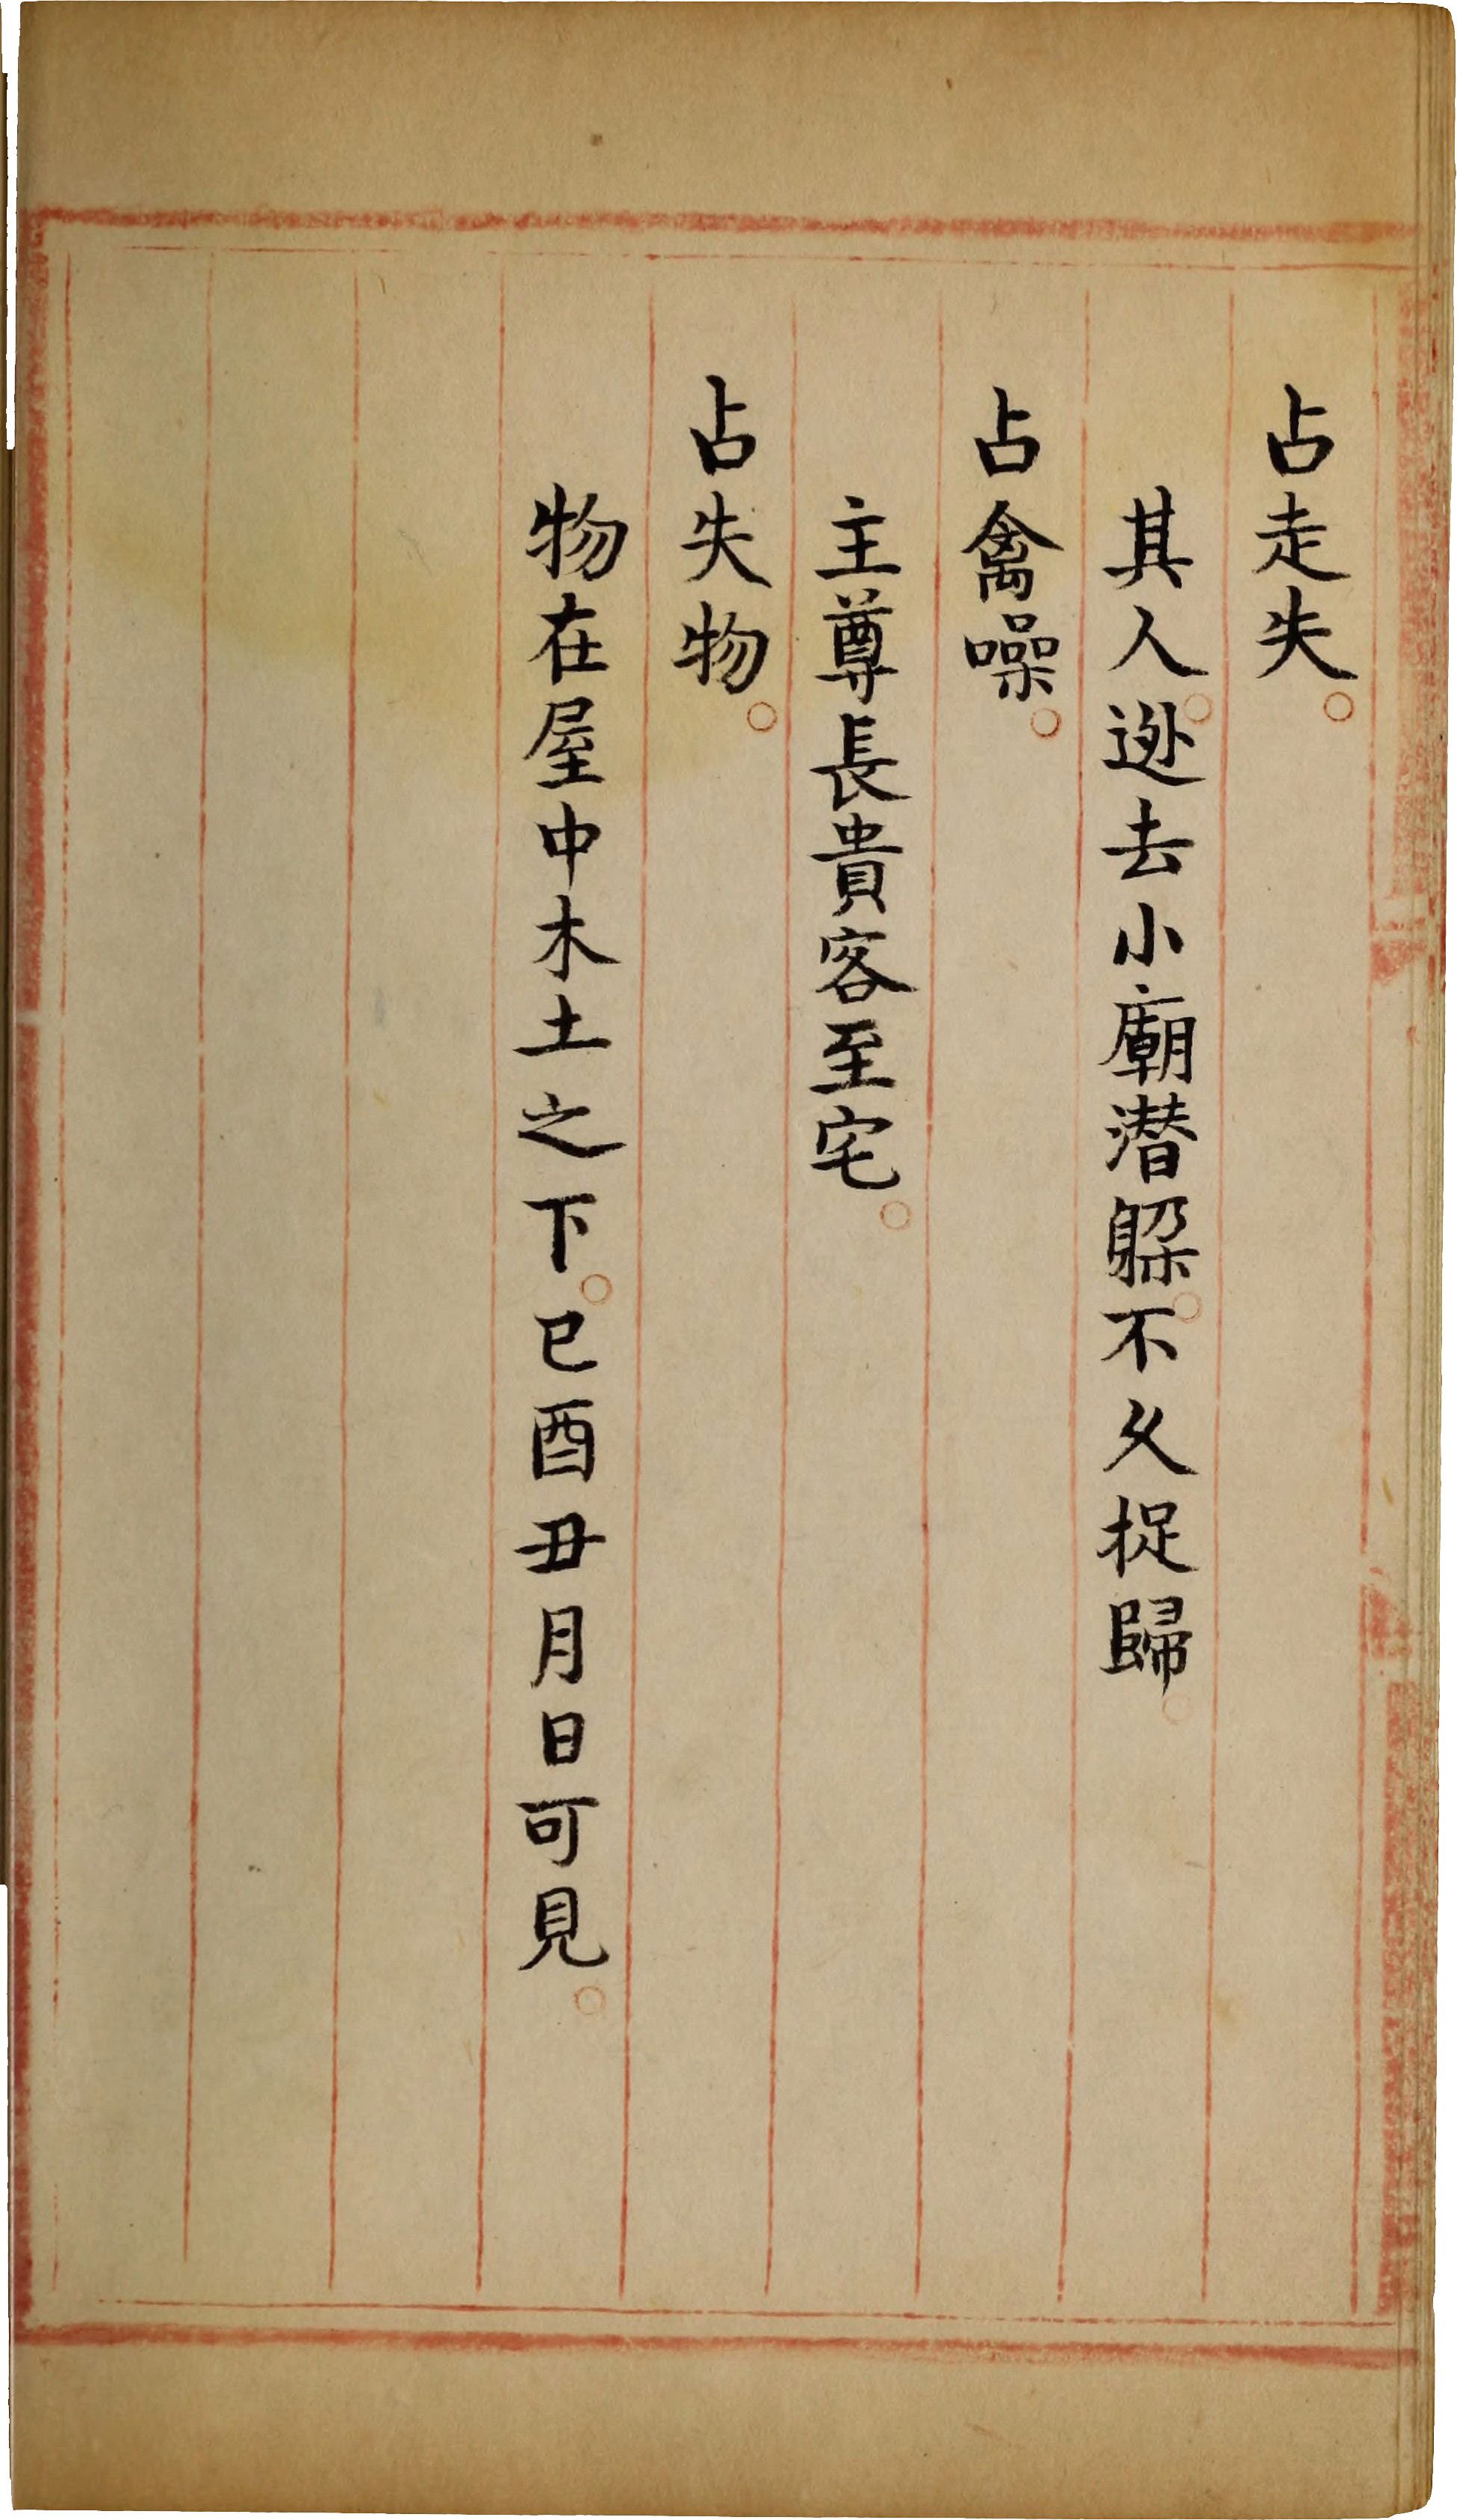 占走失。
其人。逊去小廟潜躲。不久捉歸。
占禽噪。
主尊長貴客至宅。
占失物。
物在屋中木土之下。巳酉丑月日可見。